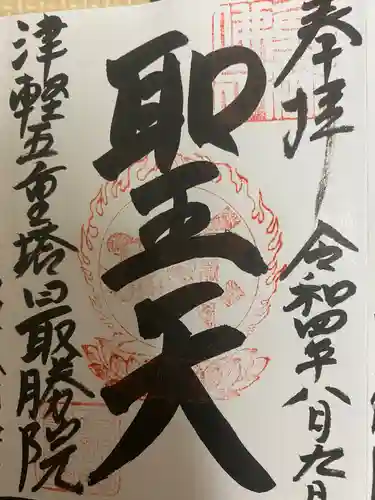 奉拝
令和四年八日九月
聖天
津軽五重塔最勝院